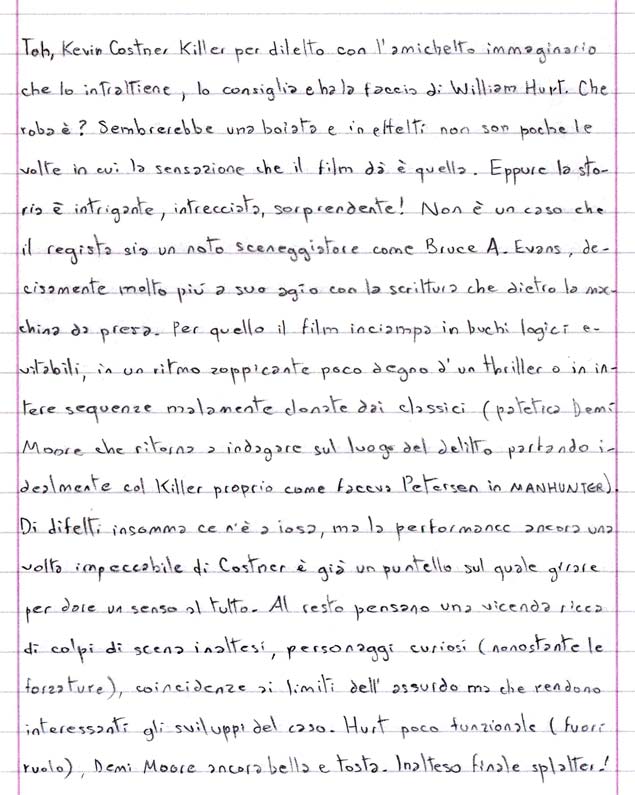 Toh, Kevin Costner Killer per diletto con l'amichetto immaginario
che lo intrattiene, lo consiglia e ha la faccia di William Hurt. Che
roba è? Sembrerebbe una boiata e in effetti non son poche le
volte in cui la sensazione che il film dà è quella. Eppure la sto-
ria è intrigante, intrecciata, sorprendente! Non è un caso che
il regista sia un noto sceneggiatore come Bruce A. Evans, de-
cisamente molto più a suo agio con la scrittura che dietro la mac-
china da presa. Per quello il film inciampa in buchi logici e-
vitabili, in un ritmo zoppicante poco degno d'un thriller o in in-
tere sequenze malamente clonate dai classici (patetica Demi
Moore che ritorna a indagare sul luogo del delitto parlando i-
dealmente col Killer proprio come faceva Petersen in MANHUNTER).
Di difetti insomma ce n'è a iosa, ma la performance ancora una
volta impeccabile di Costner è già un puntello sul quale girare
per dare un senso al tutto. Al resto pensano una vicenda ricca
di colpi di scena inattesi, personaggi curiosi (nonostante le
forzature), coincidenze ai limiti dell'assurdo ma che rendono
interessanti gli sviluppi del caso. Hurt poco funzionale (fuori
ruolo), Demi Moore ancora bella e tosta. Inatteso finale splatter!